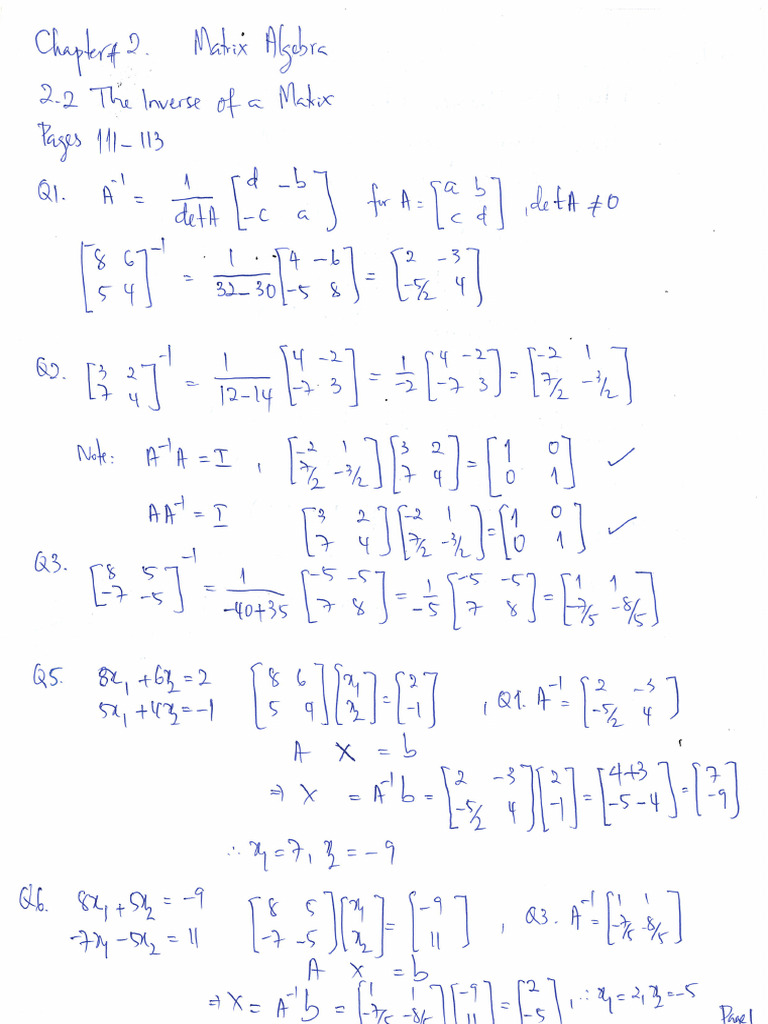 Chapter# 2. Matrix Algebra
2.2 The Inverse of a Matrix
Pages 111-113
Q1. A⁻¹ = 1/detA [d -b; -c a] for A = [a b; c d], det A ≠ 0
[8 6; 5 4]⁻¹ = 1/(32-30) [4 -6; -5 8] = [2 -3; -5/2 4]
Q2. [3 2; 7 4]⁻¹ = 1/(12-14) [4 -2; -7 3] = 1/-2 [4 -2; -7 3] = [-2 1; 7/2 -3/2]
Note: A⁻¹A = I, [-2 1; 7/2 -3/2][3 2; 7 4] = [1 0; 0 1] ✓
AA⁻¹ = I [3 2; 7 4][-2 1; 7/2 -3/2] = [1 0; 0 1] ✓
Q3. [8 5; -7 -5]⁻¹ = 1/(-40+35) [-5 -5; 7 8] = 1/-5 [-5 -5; 7 8] = [1 1; -7/5 -8/5]
Q5. 8x₁ + 6x₂ = 2 [8 6; 5 4][x₁; x₂] = [2; -1], Q1. A⁻¹ = [2 -3; -5/2 4]
5x₁ + 4x₂ = -1
A X = b
⇒ X = A⁻¹b = [2 -3; -5/2 4][2; -1] = [4+3; -5-4] = [7; -9]
∴ x₁ = 7, x₂ = -9
Q6. 8x₁ + 5x₂ = -9 [8 5; -7 -5][x₁; x₂] = [-9; 11], Q3. A⁻¹ = [1 1; -7/5 -8/5]
-7x₁ - 5x₂ = 11
A X = b
⇒ X = A⁻¹b = [1 1; -7/5 -8/5][-9; 11] = [2; -5], ∴ x₁ = 2, x₂ = -5
Page 1